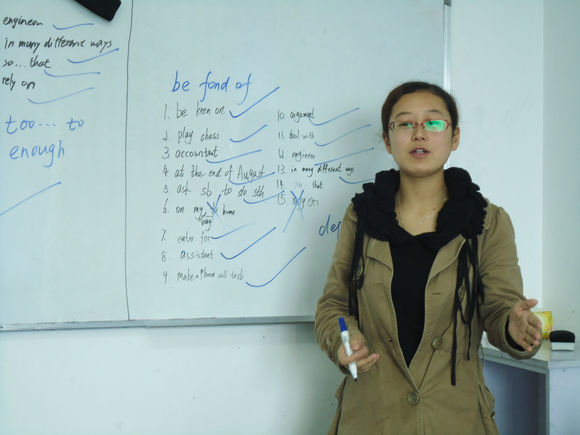 engineer
in many different ways
so... that
rely on
too... to
enough
be fond of
1. be keen on
2. play chess
3. accountant
4. at the end of August
5. ask sb to do sth
6. on my to home
way
7. enter for
8. assistant
9. make a phone call to sb
10. argument
11. deal with
12. engineer
13. in many different ways
14. so... that
15. rely on
de